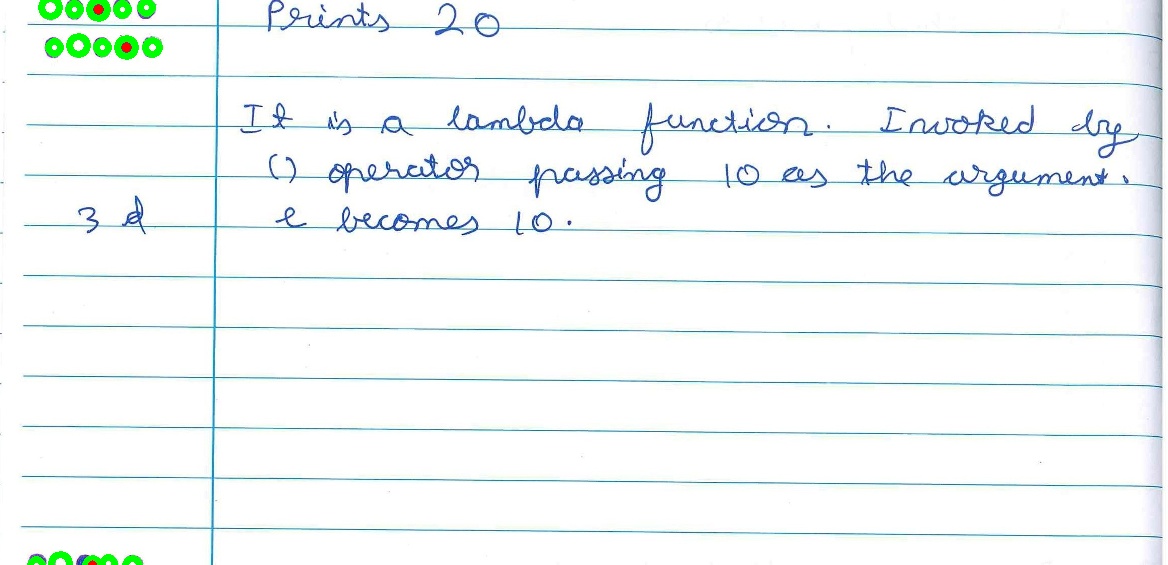 Prints 20
It is a lambda function. Invoked by
() operator passing 10 as the argument.
3 d e becomes 10.